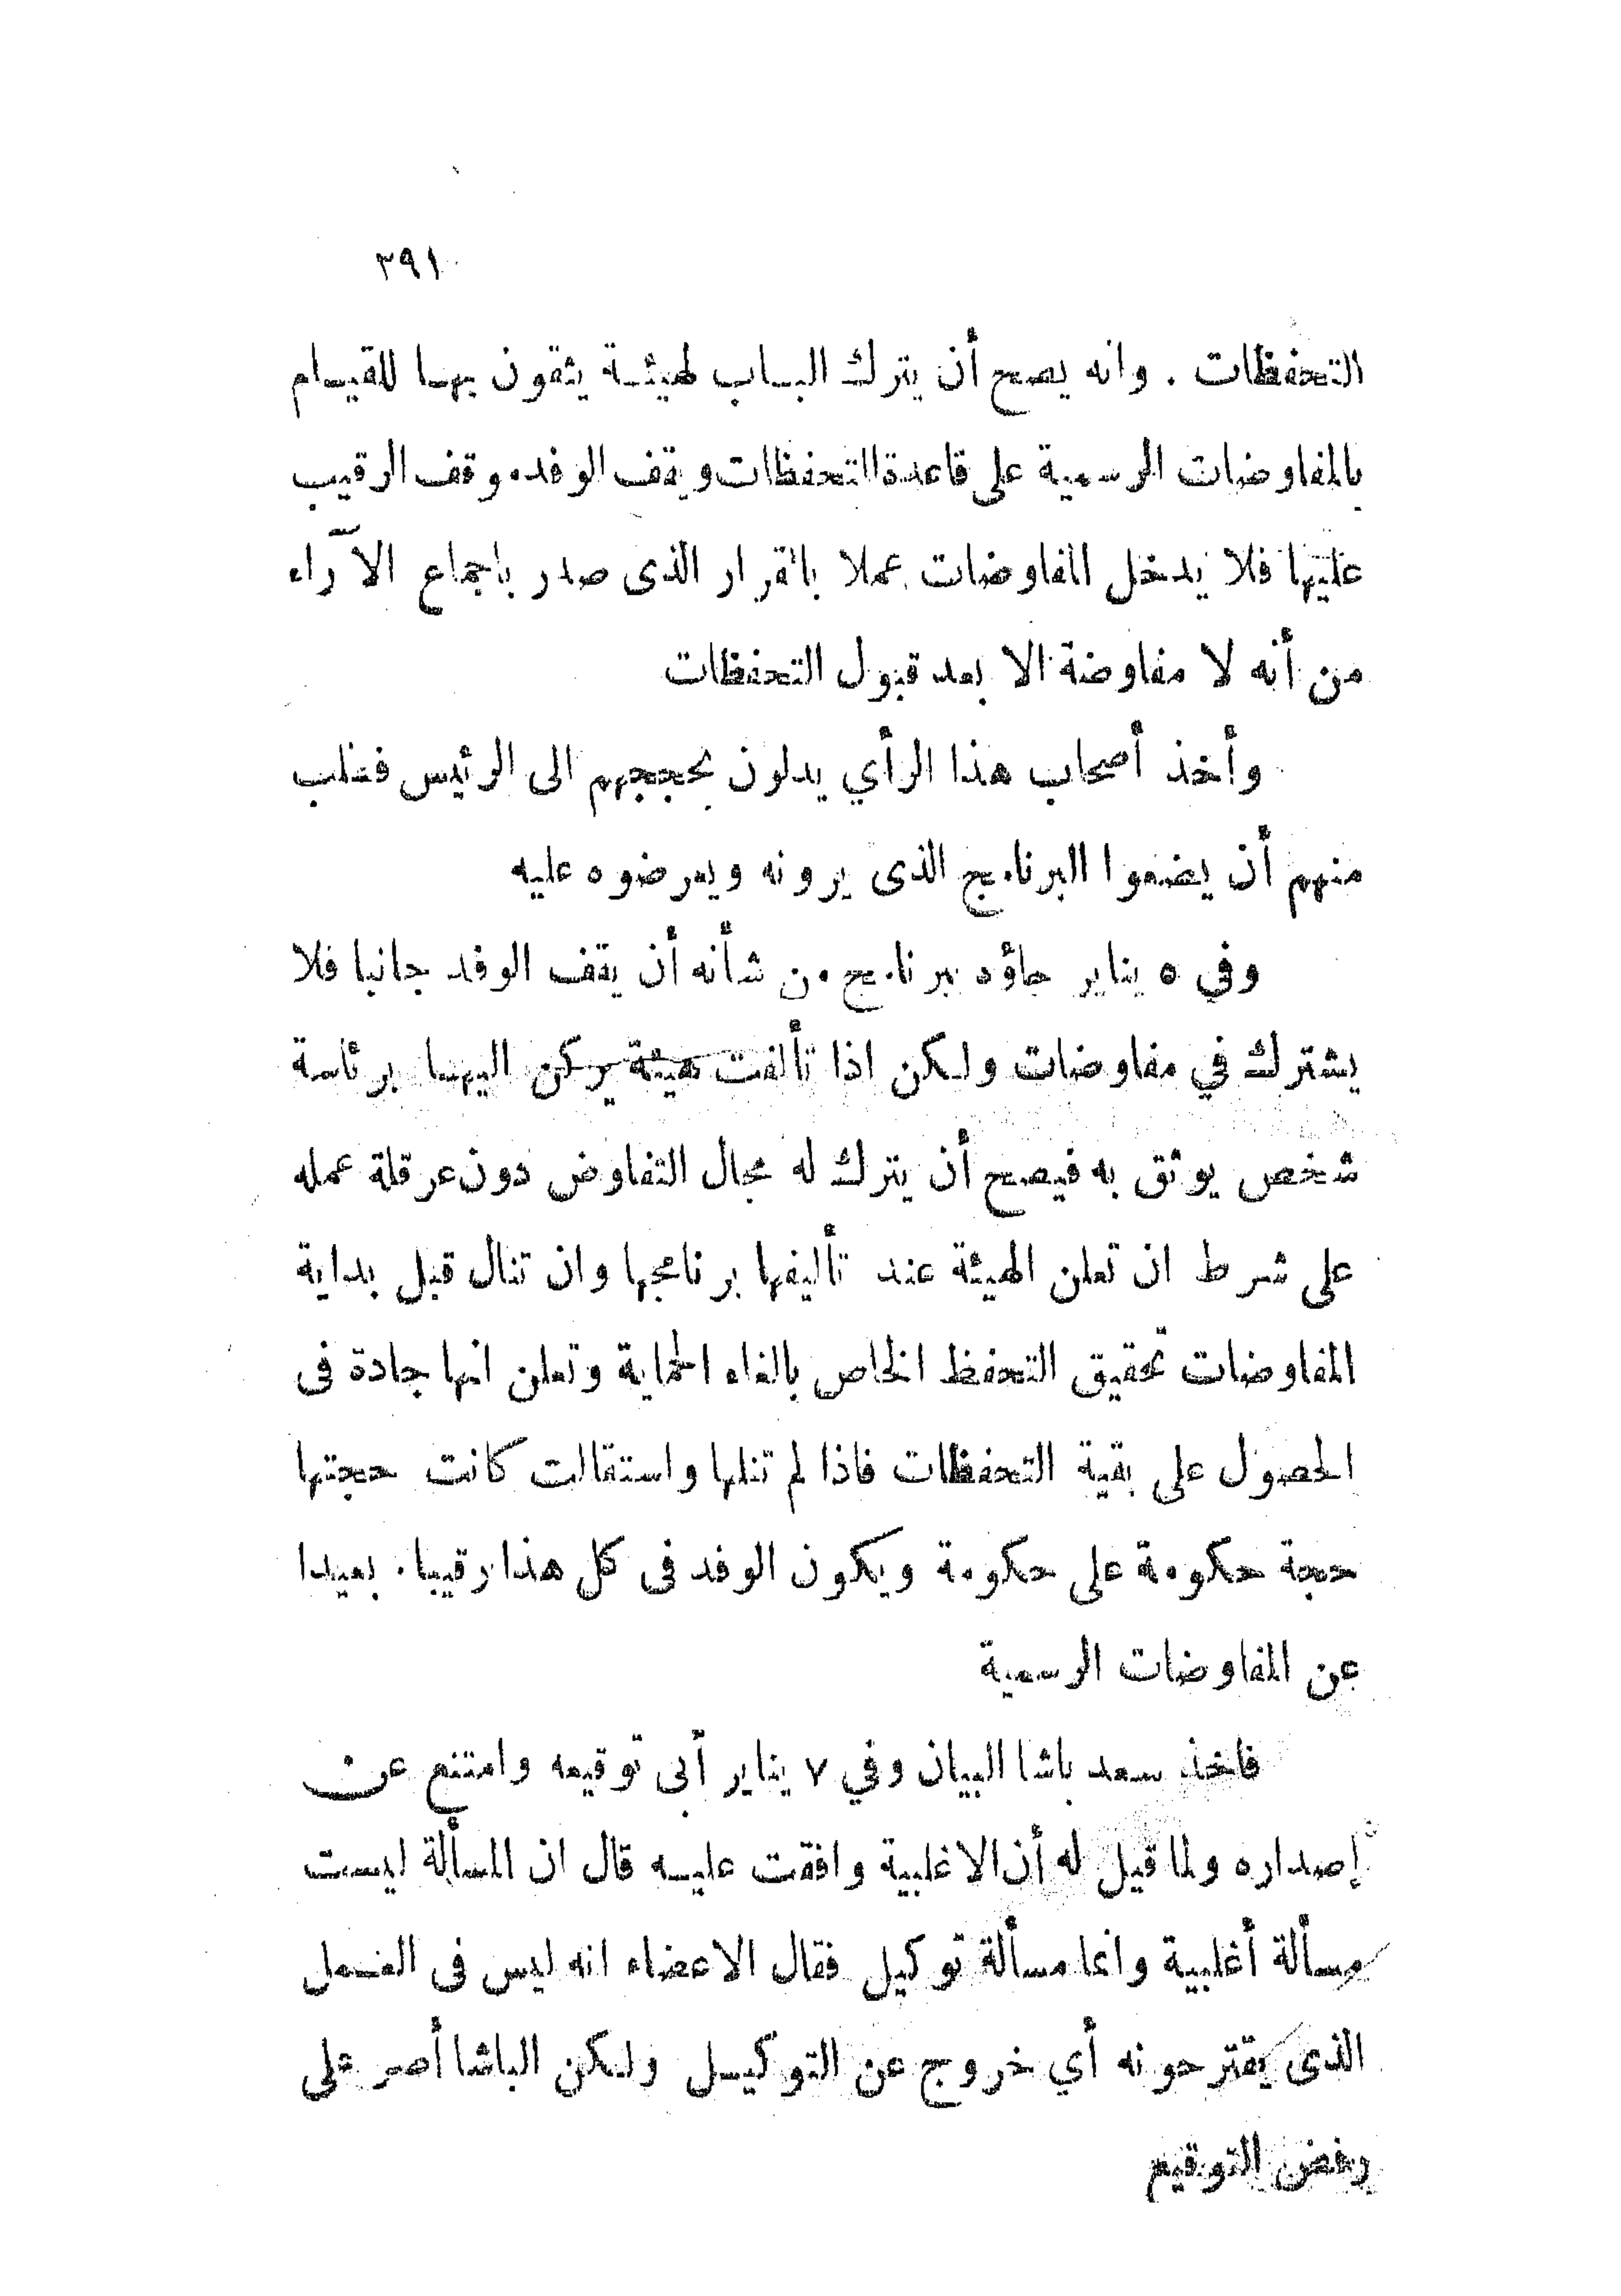 ٣٩١
التحفظات . وانه يصح أن يترك الباب لهيئة يثقون بها للقيام
بالمفاوضات الرسمية على قاعدة التحفظات ويقف الوفد موقف الرقيب
عليها فلا يدخل المفاوضات عملا بالقرار الذى صدر باجماع الآراء
من أنه لا مفاوضة الا بعد قبول التحفظات
وأخذ أصحاب هذا الرأي يدلون بحججهم الى الرئيس فطلب
منهم أن يضعوا البرنامج الذى يرونه ويعرضوه عليه
وفي ٥ يناير جاؤه ببرنامج من شأنه أن يقف الوفد جانبا فلا
يشترك في مفاوضات ولكن اذا تألفت هيئة يركن اليها برئاسة
شخص يوثق به فيصح أن يترك له مجال التفاوض دون عرقلة عمله
على شرط ان تعلن الهيئة عند تأليفها برنامجها وان تنال قبل بداية
المفاوضات تحقيق التحفظ الخاص بالغاء الحماية وتعلن انها جادة فى
الحصول على بقية التحفظات فاذا لم تنلها واستقالت كانت حجتها
حجة حكومة على حكومة ويكون الوفد فى كل هذا رقيبا . بعيدا
عن المفاوضات الرسمية
فاخذ سعد باشا البيان وفي ٧ يناير أبى توقيعه وامتنع عن
إصداره ولما قيل له أن الاغلبية وافقت عليه قال ان المسألة ليست
مسألة أغلبية وانما مسألة توكيل فقال الاعضاء انه ليس فى العمل
الذى يقترحونه أي خروج عن التوكيل ولكن الباشا أصر على
رفض التوقيع